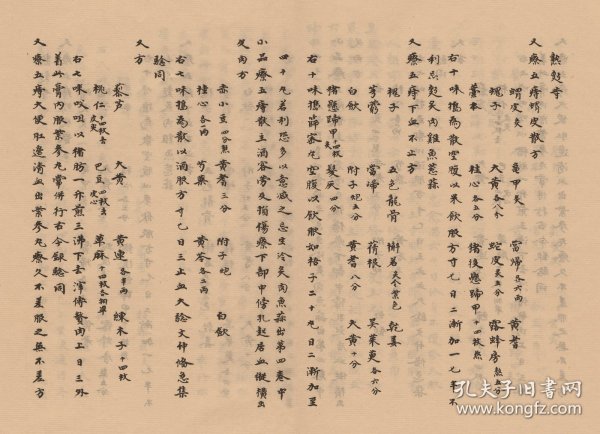 熱発寺
又療五痔蝟皮散方
蝟皮炙 龜甲炙 當歸各六兩 黃耆
槐子 大黃各八分 蛇皮炙五分 露蜂房熬五分
藁本 桂心各五分 猪後懸蹄十四枚熬
右十味搗為散空腹以米飲服方寸匕日二漸加一匕半不
利忌魚炙肉雞魚葱蒜
又療五痔下血不止方
槐子 五色龍骨 槲若炙令紫色 乾姜
芎藭 當歸 茜根 吳茱萸各六分
白斂 附子炮五分 黃耆八分 大黃十分
猪懸蹄甲十四枚炙 髮灰四分
右十味搗篩蜜丸空腹以飲服如梧子二十丸日二漸加至
四十丸若利思多以意減之忌生冷炙肉魚蒜出第四卷中
小品療五痔散主酒客勞及損傷療下部中傍孔起居血縱橫出
又內方
赤小豆四分熬 黃耆三分 附子炮 白斂
桂心各一兩 芍藥 黃芩各二兩
右七味搗為散以酒服方寸匕日三止血大驗文仲俻急集
驗同
又方
藜芦 大黃 黃連各半兩 練木子十四枚
桃仁十四枚去皮炙 巴豆四枚去皮心 萆麻十四枚各搗華
右七味㕮咀以猪肪一升煎三沸下去滓傅贅肉上日三外
著此膏內服紫參丸常併行古今録驗同
又療五痔大便肛邊清血出紫參丸療久不差服之無不差方
孔夫子旧書网
www.kongfz.com